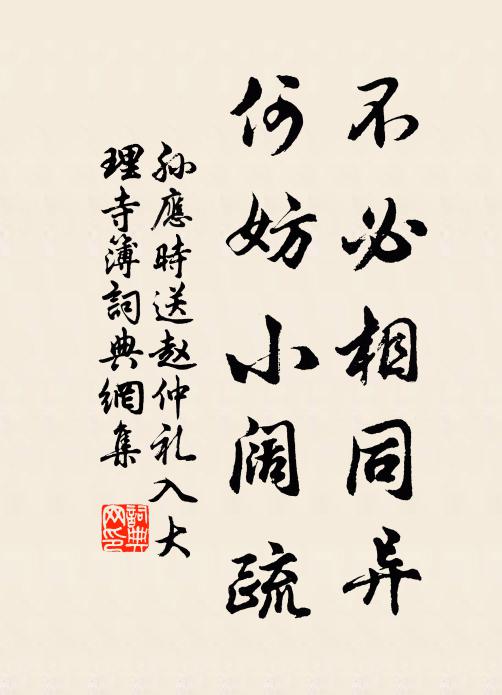 不必相同异
何妨小阔疏
孙應時送赵仲礼入大
理寺簿詞典網集
詞典网印